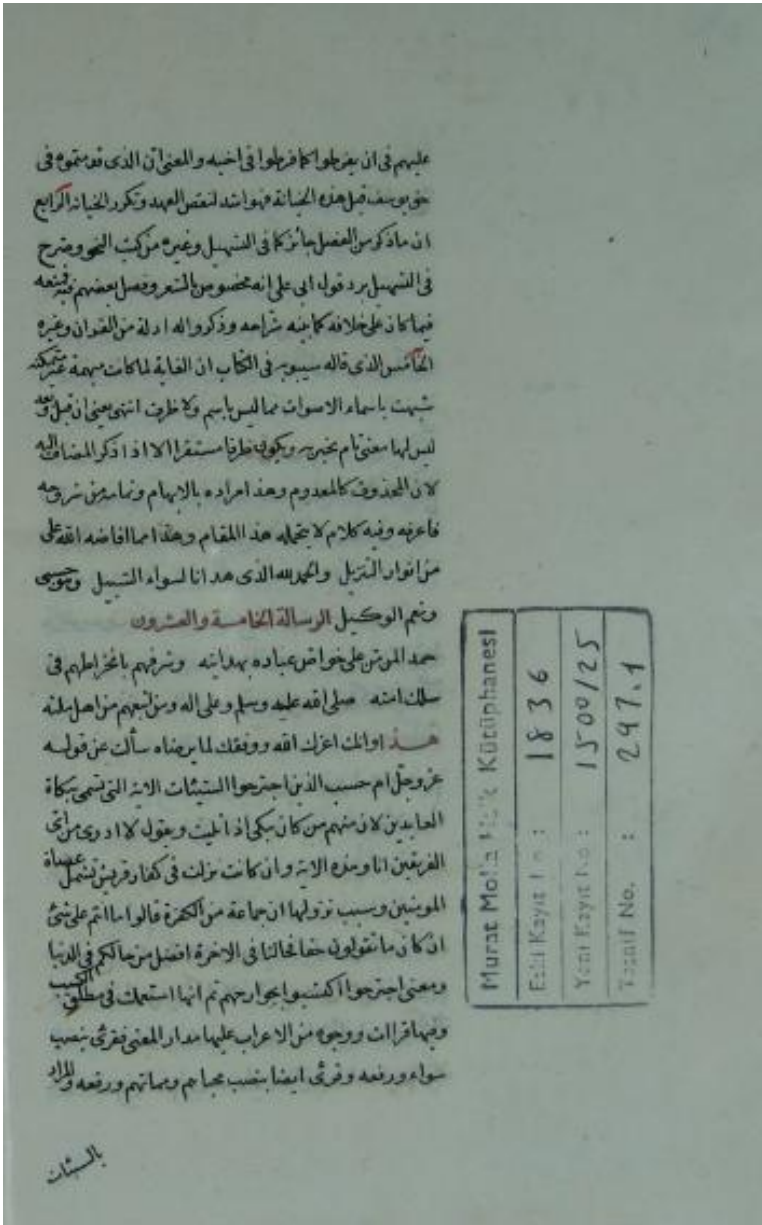 عليهم فى ان يفرطوا كما فرطوا فى اخيه والمعنى ان الذى قدمتموه فى
حق يوسف قبل هذه الخيانة فهو اشد لنقض العهد وتكرر الخيانة الرابع
ان ما ذكر من الفصل جائز كما فى التسهيل وغيره من كتب النحو وصرح
فى التسهيل برد قول ابى على انه مخصوص بالشعر وفصل بعضهم فيه فمنعه
فيما كان على خلافه كما بينه شراحه وذكروا له ادلة من القران وغيره
الخامس الذى قاله سيبويه فى الكتاب ان الغاية لما كانت مبهمة غير متمكنة
شبهت باسماء الاصوات مما ليس باسم ولا ظرف انتهى يعنى ان قبل وبعد
ليس لها معنى تام يخبر به ويكون ظرفا مستقرا الا اذا ذكر المضاف اليه
لان المحذوف كالمعدوم وهذا مراده بالابهام وتمامه من شروحه
فاعرفه وفيه كلام لا يتحمله هذا المقام وهذا مما افاضه الله على
من انوار التنزيل والحمد لله الذى هدانا لسواء السبيل وهو حسبى
ونعم الوكيل الرسالة الخامسة والعشرون
حمد المن من على خواص عباده بهدايته وشرفهم بانخراطهم فى
سلك امته صلى الله عليه وسلم وعلى اله ومن تبعهم من اهل ملته
هذا وانك اعزك الله ووفقك لما يرضاه سألت عن قوله
عز وجل ام حسب الذين اجترحوا السيئات الاية التى تسمى مبكاة
العابدين لان منهم من كان يبكى اذا تليت ويقول لا ادرى من اى
الفريقين انا وهذه الاية وان كانت نزلت فى كفار قريش تشمل عصاة
المومنين وسبب نزولها ان جماعة من الكفرة قالوا ما انتم على شئ
ان كان ما تقولون حقا فحالنا فى الاخرة افضل من حالكم فى الدنيا
ومعنى اجترحوا اكتسبوا بجوارحهم ثم انها استعملت فى مطلق الكسب
وفيها قراات ووجوه من الاعراب عليها مدار المعنى فقرئ بنصب
سواء ورفعه وقرئ ايضا بنصب محياهم ومماتهم ورفعه والمراد
بالسيئات
Murat Molla Halk Kütüphanesi
Eski Kayıt No : 1836
Yeni Kayıt No : 1500/25
Tasnif No. : 297.1